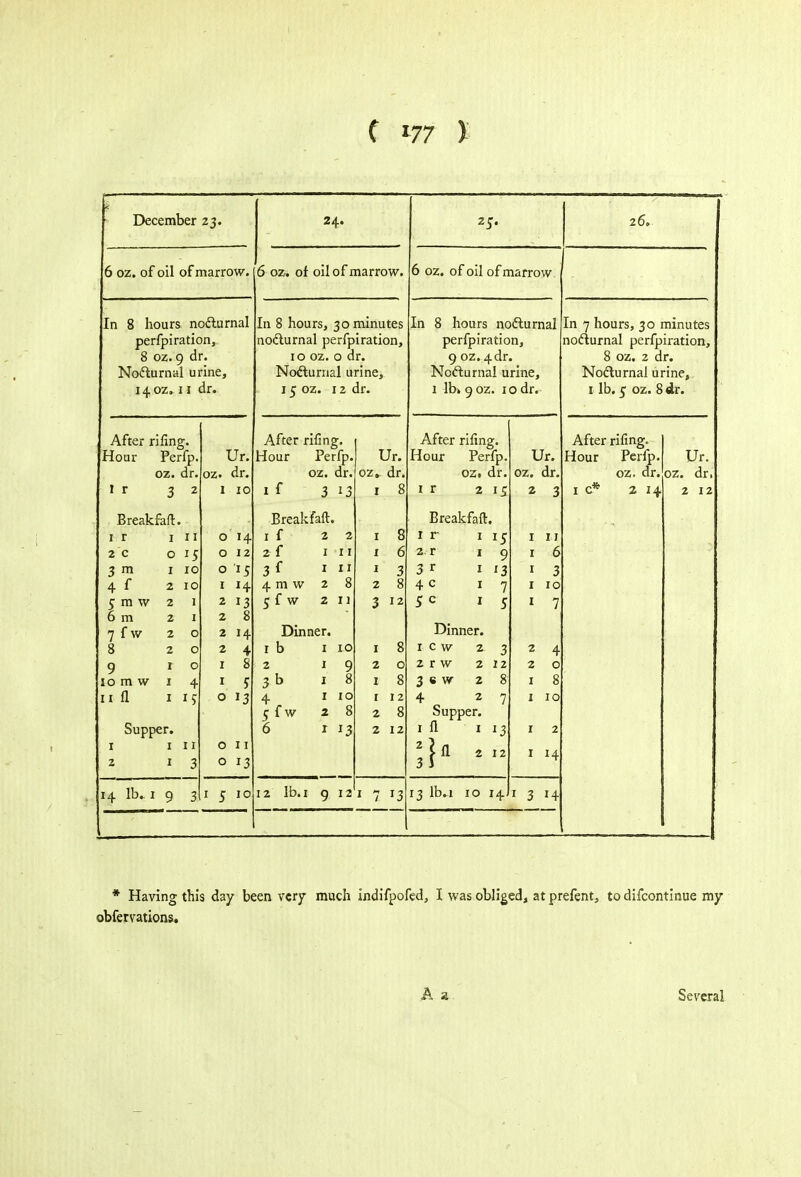 ( 177 )
December 23.
6 oz. of oil of marrow.
In 8 hours nocturnal
perſpiration,
8 oz. 9 dr.
Nocturnal urine,
14 oz. 11 dr.
After riſing.
Hour Perſp. Ur.
oz. dr. oz. dr.
1 r 3 2 1 10
Breakfaſt.
1 r 1 11 0 14
2 c 0 15 0 12
3 m 1 10 0 15
4 f 2 10 1 14
5 m w 2 1 2 13
6 m 2 1 2 8
7 f w 2 0 2 14
8 2 0 2 4
9 1 0 1 8
10 m w 1 4 1 5
11 ſl 1 15 0 13
Supper.
1 1 11 0 11
2 1 3 0 13
14 lb. 1 9 3 1 5 10
24.
6 oz. of oil of marrow.
In 8 hours, 30 minutes
nocturnal perſpiration,
10 oz. 0 dr.
Nocturnal urine,
15 oz. 12 dr.
After riſing.
Hour Perſp. Ur.
oz. dr. oz. dr.
1 f 3 13 1 8
Breakfaſt.
1 f 2 2 1 8
2 f 1 11 1 6
3 f 1 11 1 3
4 m w 2 8 2 8
5 f w 2 11 3 12
Dinner.
1 b 1 10 1 8
2 1 9 2 0
3 b 1 8 1 8
4 1 10 1 12
5 f w 2 8 2 8
6 1 13 2 12
12 lb. 1 9 12 1 7 13
25.
6 oz. of oil of marrow
In 8 hours nocturnal
perſpiration,
9 oz. 4 dr.
Nocturnal urine,
1 lb. 9 oz. 10 dr.
After riſing.
Hour Perſp. Ur.
oz. dr. oz. dr.
1 r 2 15 2 3
Breakfaſt.
1 r 1 15 1 11
2 r 1 9 1 6
3 r 1 13 1 3
4 c 1 7 1 10
5 c 1 5 1 7
Dinner.
1 c w 2 3 2 4
2 r w 2 12 2 0
3 w 2 8 1 8
4 2 7 1 10
Supper.
1 ſl 1 13 1 2
2 } ſl 2 12 1 14
3 }
13 lb. 1 10 14 1 3 14
26.
In 7 hours, 30 minutes
nocturnal perſpiration,
8 oz. 2 dr.
Nocturnal urine,
1 lb. 5 oz. 8 dr.
After riſing.
Hour Perſp. Ur.
oz. dr. oz. dr.
1 c* 2 14 2 12
* Having this day been very much indiſpoſed, I was obliged, at preſent, to diſcontinue my
obſervations.
A a
Several